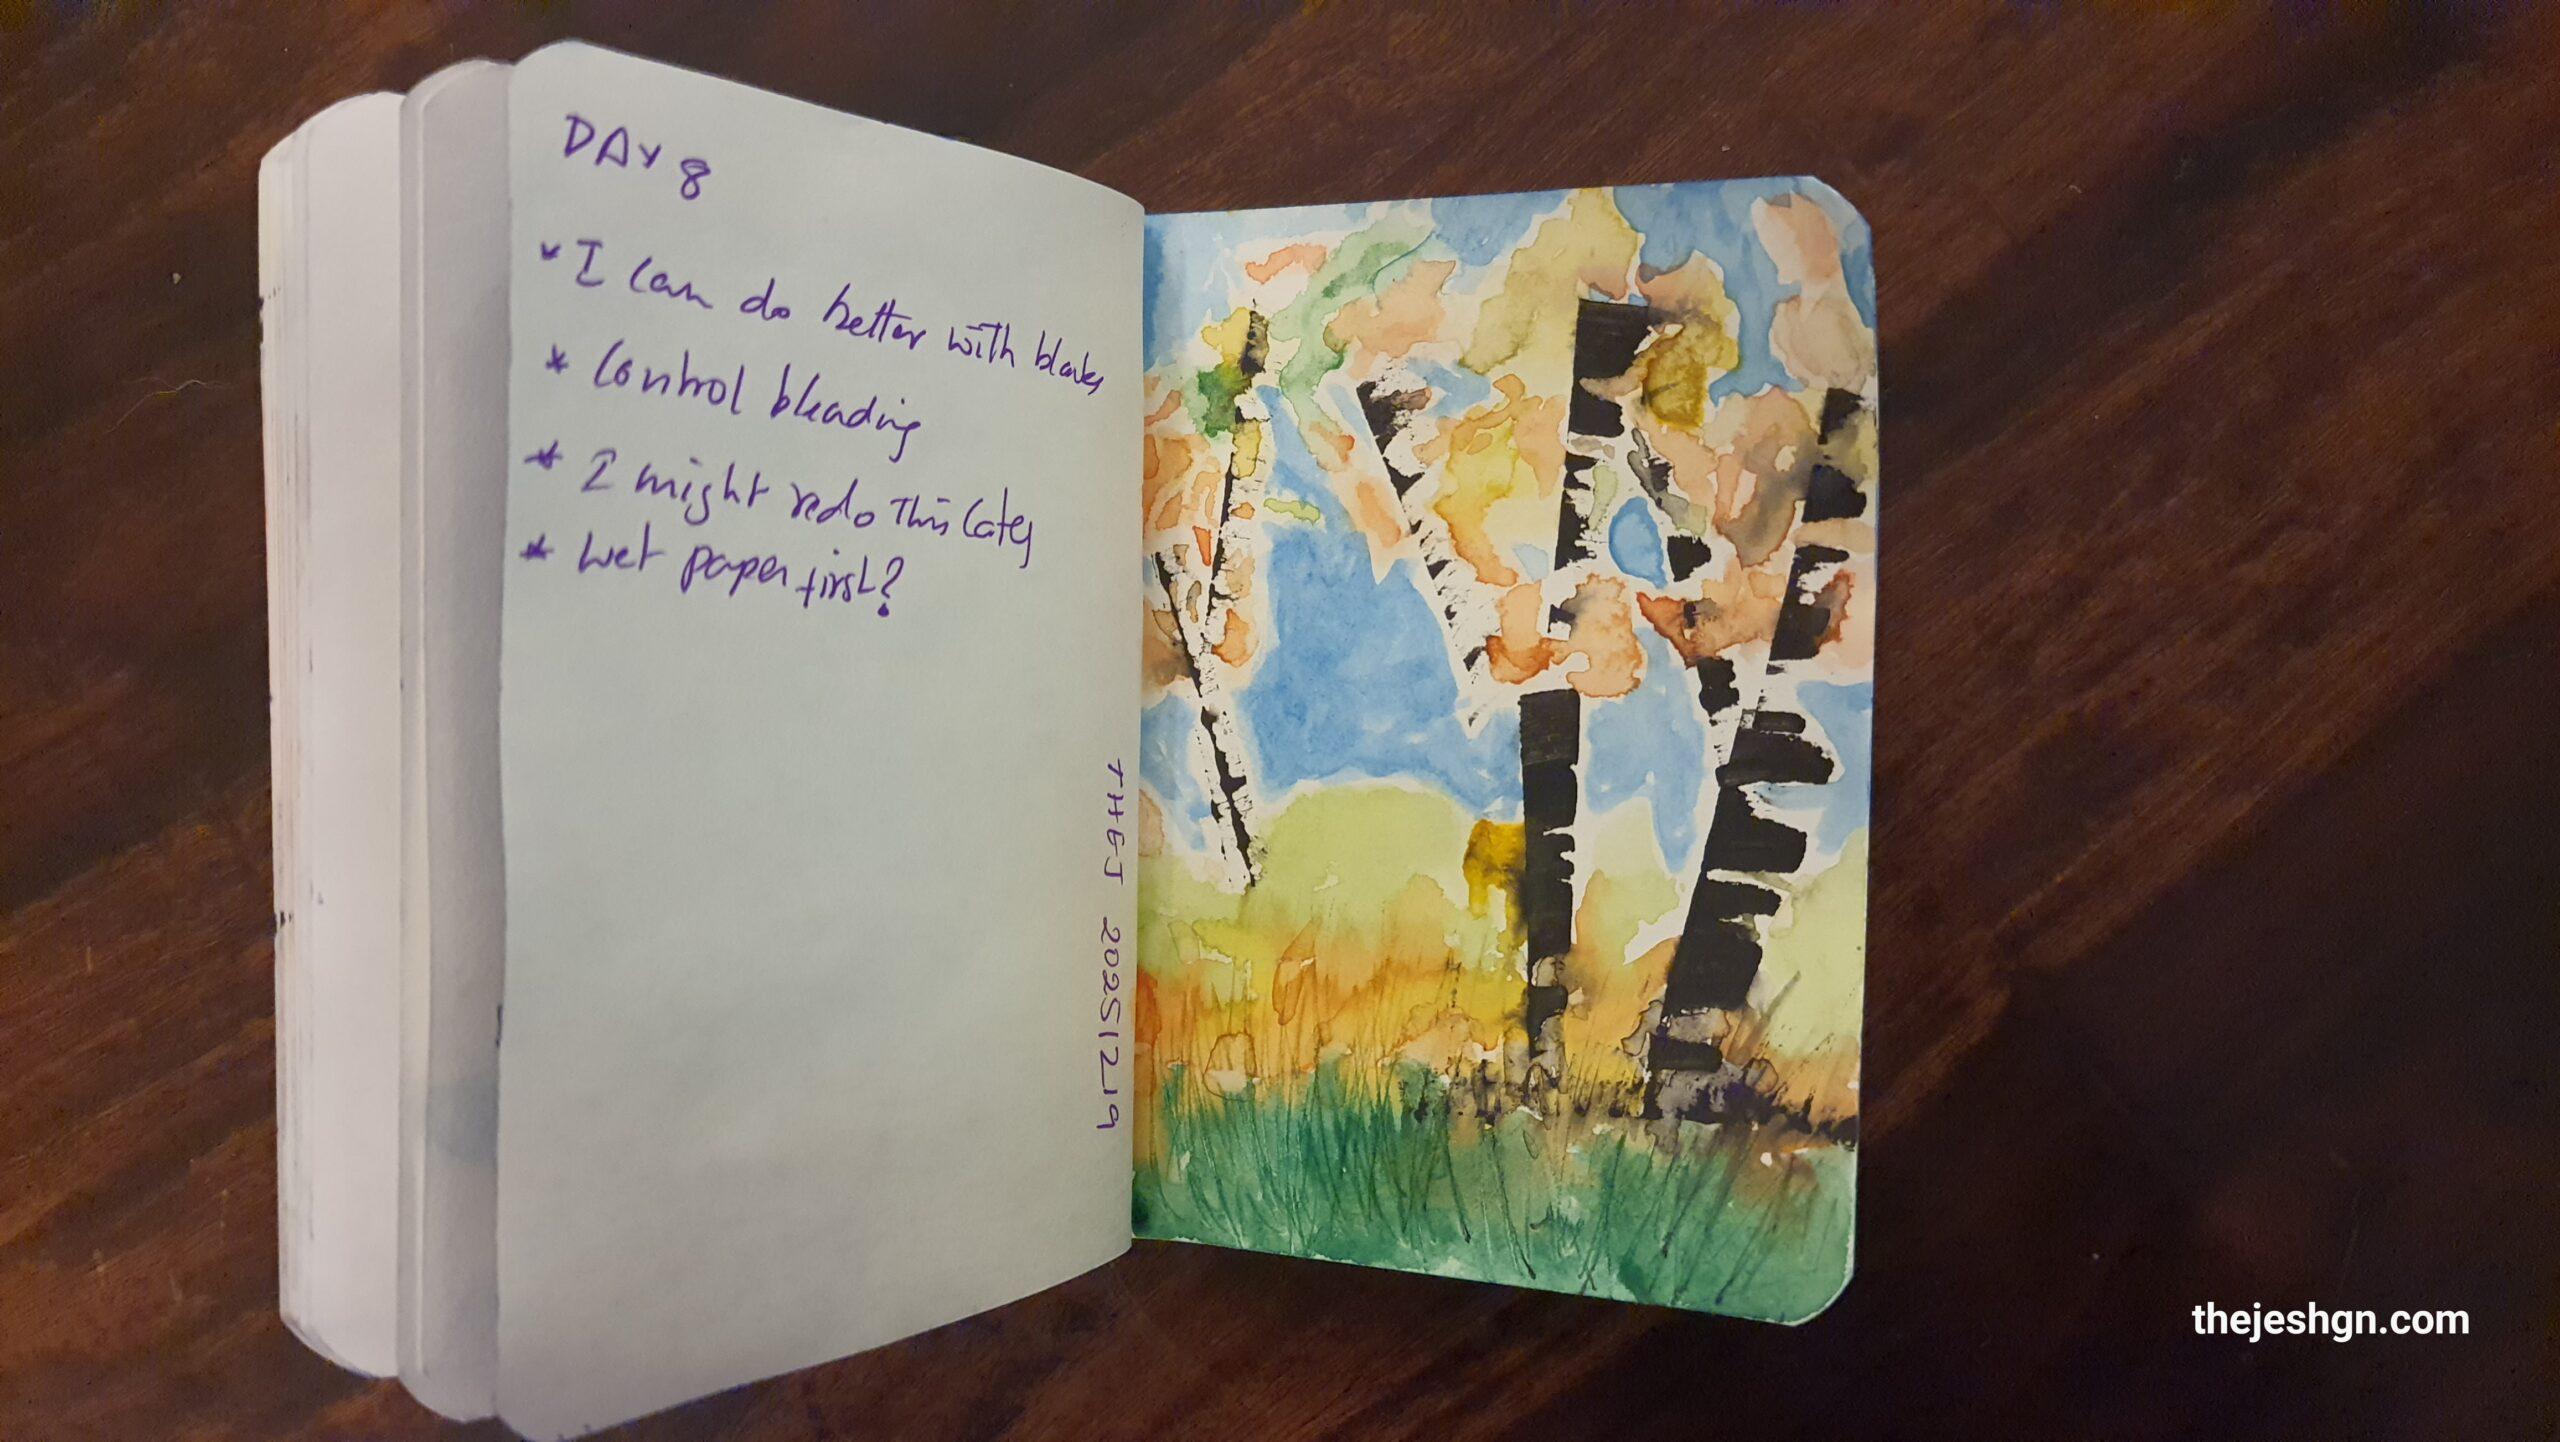 DAY 8
* I can do better with blacks
* Control bleading
* I might redo this later
* Wet paper first?
THEJ 20251219
thejeshgn.com